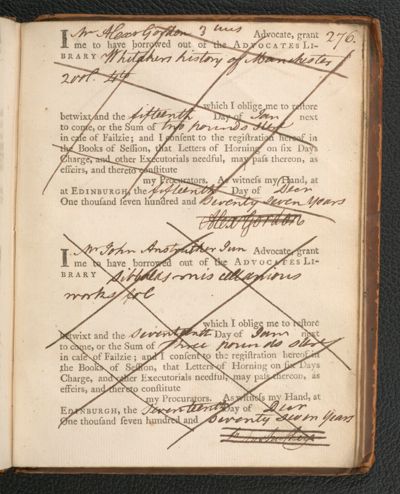 276.
I Mr Alexr Gordon 3 Advocate, grant
me to have borrowed out of the ADVOCATES LI-
BRARY Whitakers history of Manchester
2 vol. 4to
which I oblige me to reſtore
betwixt and the fifteenth Day of Jan next
to come, or the Sum of two pounds sterl
in caſe of Failzie; and I conſent to the regiſtration hereof in
the Books of Seſſion, that Letters of Horning on ſix Days
Charge, and other Executorials needful, may paſs thereon, as
effeirs, and thereto conſtitute
my Procurators. As witneſs my Hand, at
at EDINBURGH, the fifteenth Day of Decr
One thouſand ſeven hundred and Seventy Seven Years
Alexr Gordon
I Mr John Anstruther Jun Advocate, grant
me to have borrowed out of the ADVOCATES LI-
BRARY Sibbalds miscellanious
works fol
which I oblige me to reſtore
betwixt and the Seventeenth Day of Jan next
to come, or the Sum of three pounds sterl
in caſe of Failzie; and I conſent to the regiſtration hereof in
the Books of Seſſion, that Letters of Horning on ſix Days
Charge, and other Executorials needful, may paſs thereon, as
effeirs, and thereto conſtitute
my Procurators. As witneſs my Hand, at
EDINBURGH, the Seventeenth Day of Decr
One thouſand ſeven hundred and Seventy Seven Years